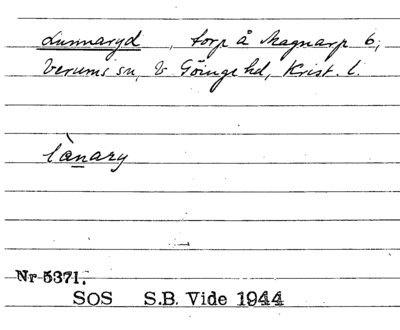 Lunnaryd , torp å Magnarp 6,
Verums sn, V Göinge hd, Krist. l.
lànary
Nr 5371.
SOS S.B. Vide 1944